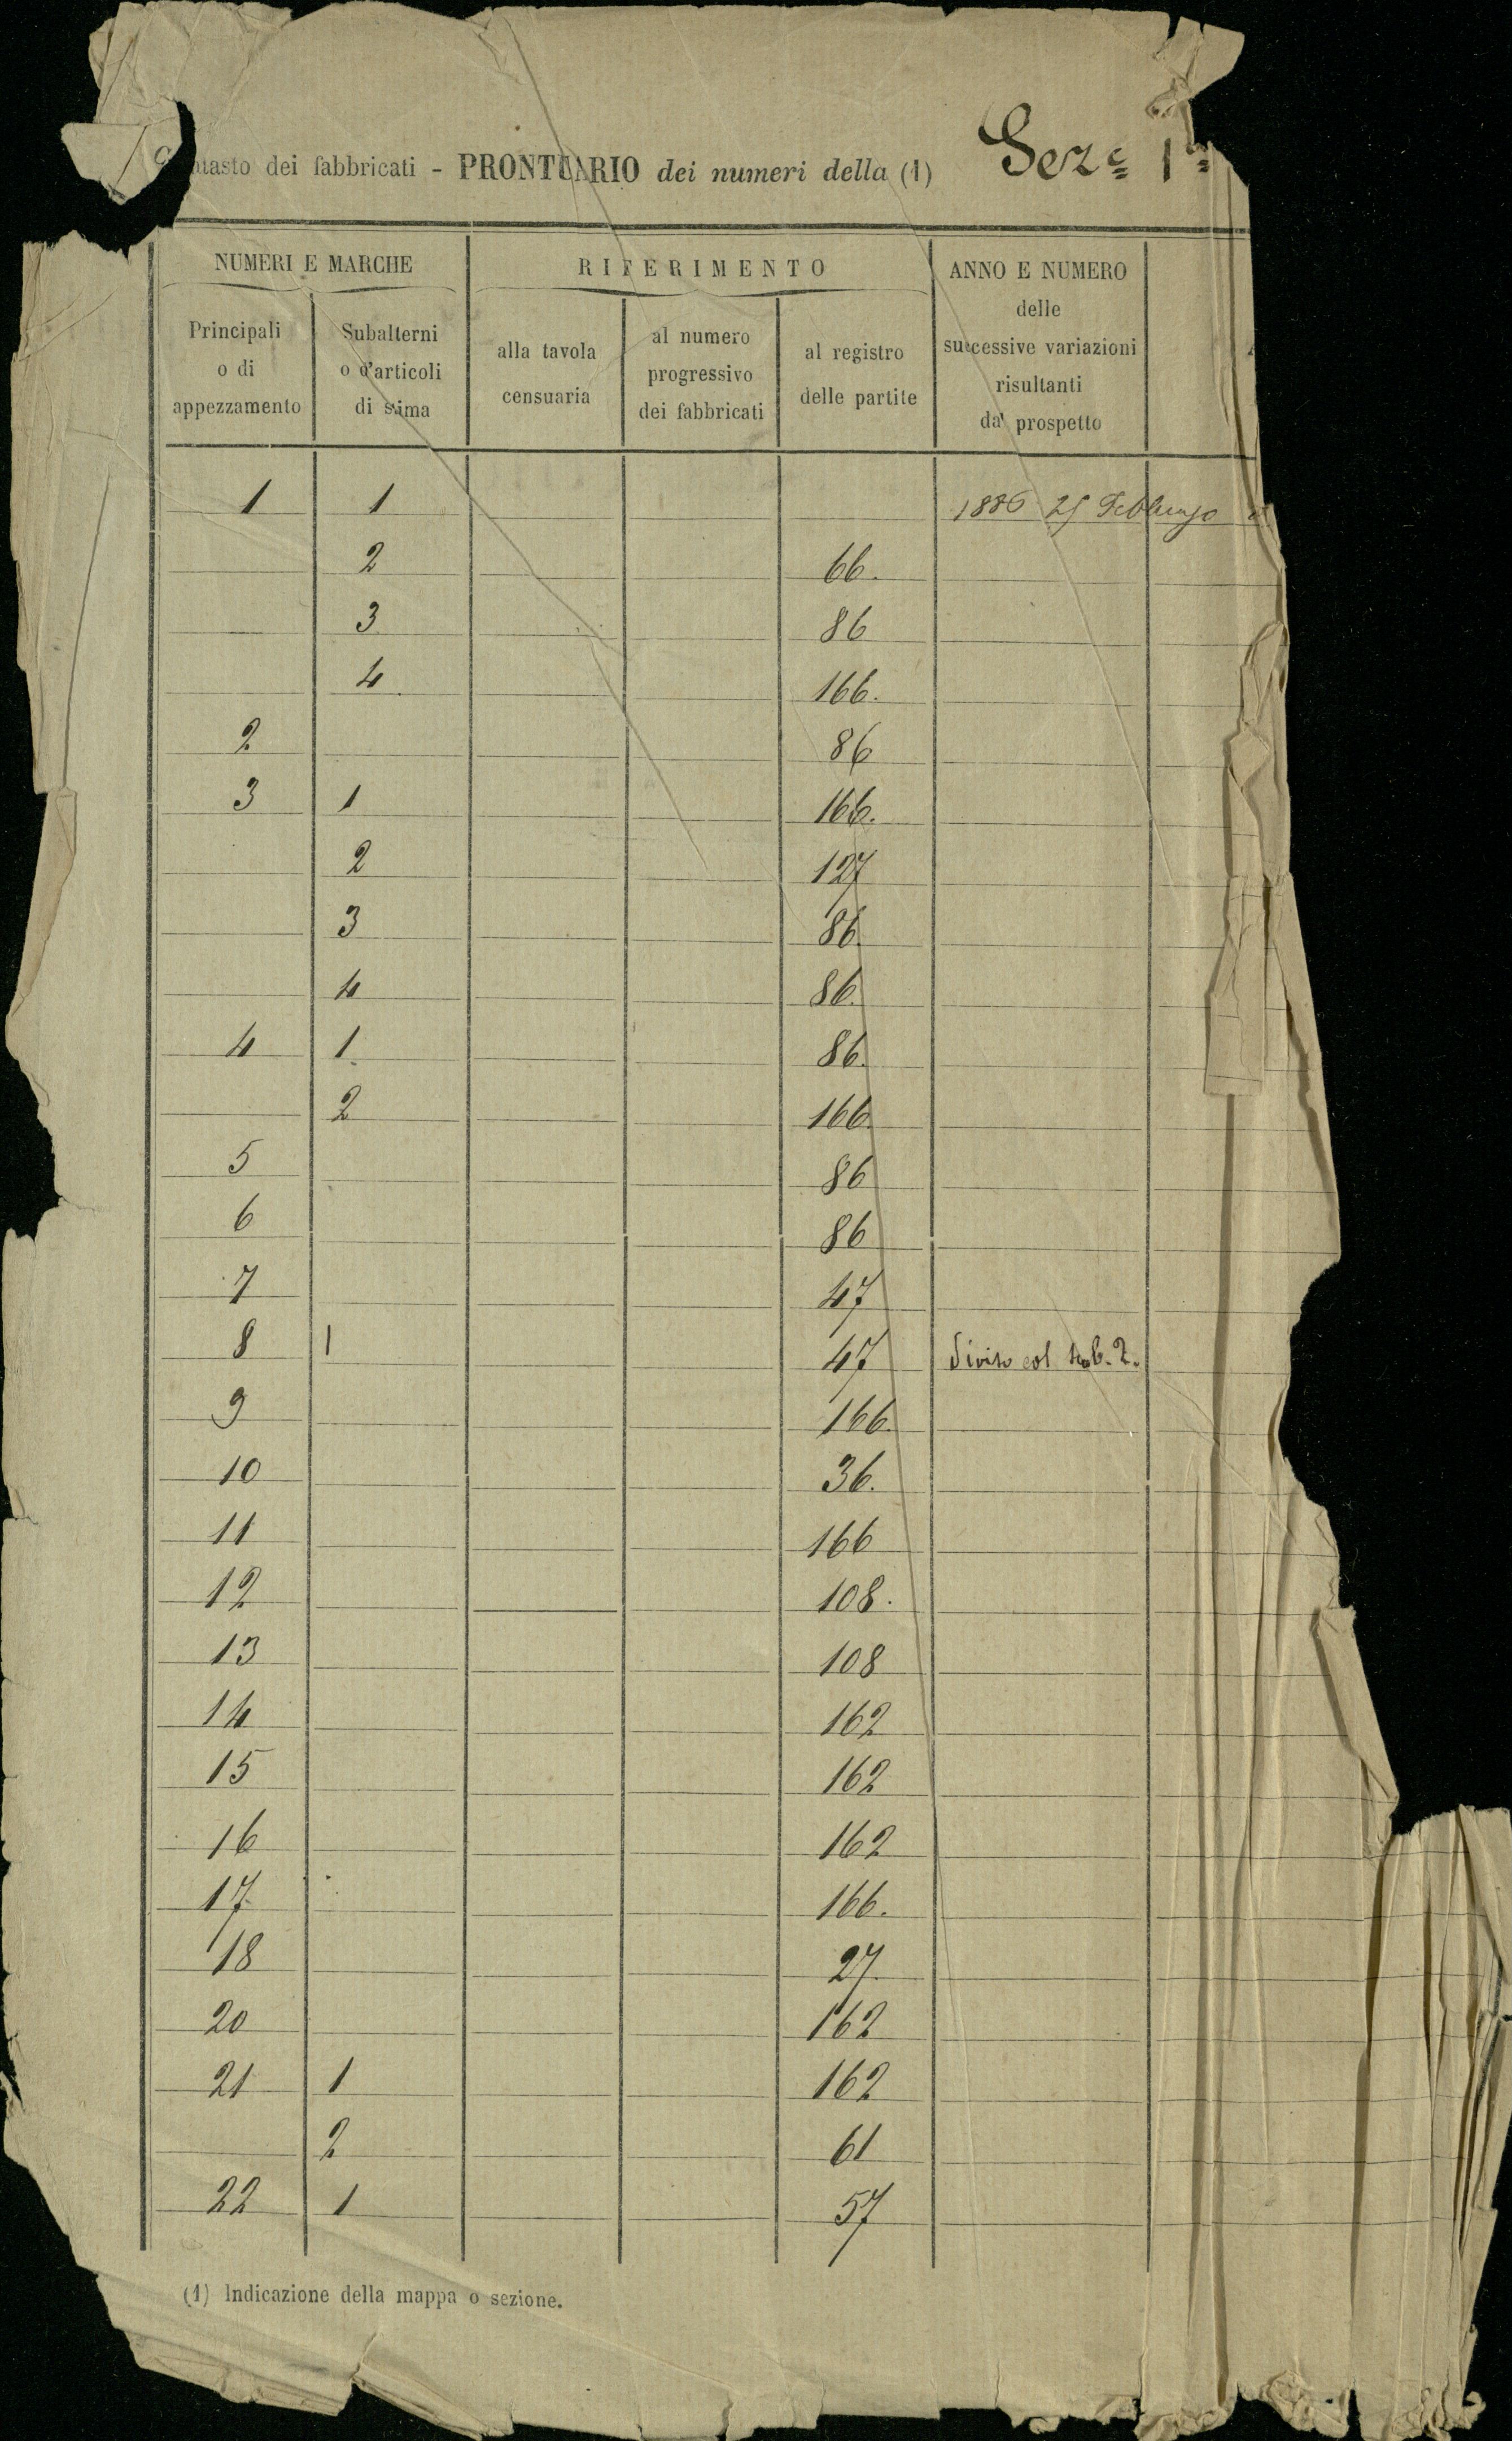 tasto dei fabbricati - PRONTUARIO dei numeri della (1) Sez.e 1a
NUMERI E MARCHE
RIFERIMENTO
ANNO E NUMERO
delle
successive variazioni
risultanti
da' prospetto
Principali
o di
appezzamento
Subalterni
o d'articoli
di stima
alla tavola
censuaria
al numero
progressivo
dei fabbricati
al registro
delle partite
1 1 1886 25 Febbrajo
2 66.
3 86
4 166.
2 86
3 1 166.
2 127
3 86.
4 86.
4 1 86.
2 166.
5 86
6 86
7 47
8 1 47 diviso col sub. 2.
9 166.
10 36.
11 166
12 108.
13 108
14 162
15 162
16 162
17 166.
18 27.
20 162
21 1 162
2 61
22 1 57
(1) Indicazione della mappa o sezione.